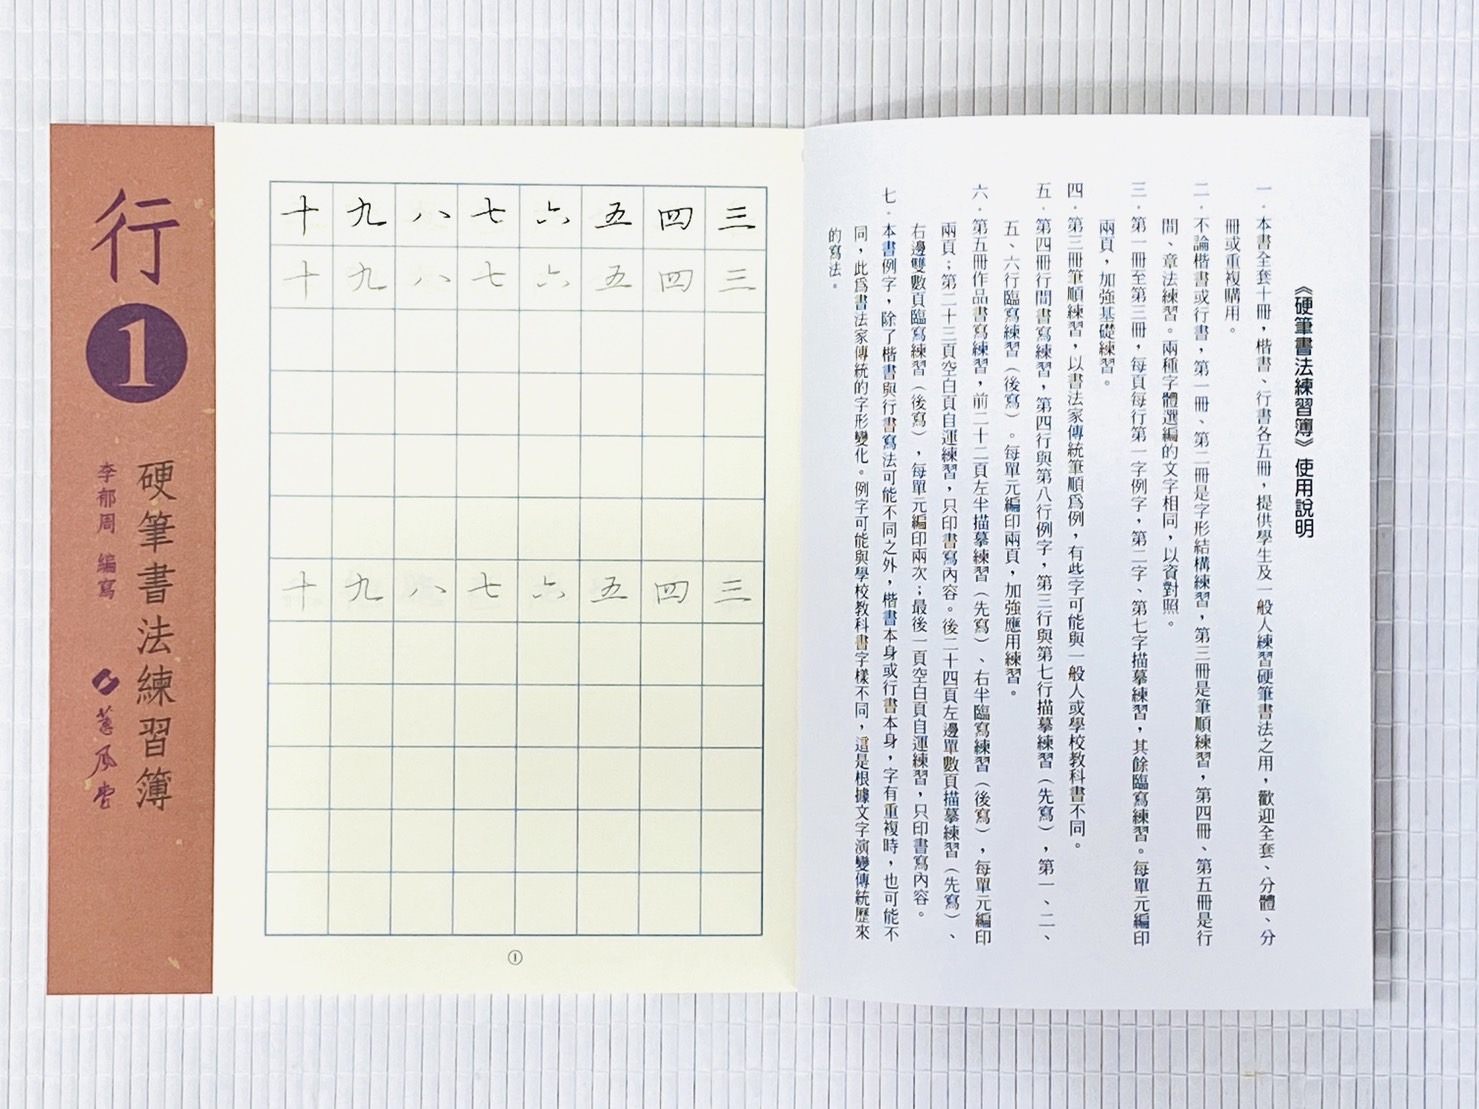 《硬筆書法練習簿》使用說明
一．本書全套十冊，楷書、行書各五冊，提供學生及一般人練習硬筆書法之用，歡迎全套、分體、分
冊或重複購用。
二．不論楷書或行書，第一冊、第二冊是字形結構練習，第三冊是筆順練習，第四冊、第五冊是行
間、章法練習。兩種字體選編的文字相同，以資對照。
三．第一冊至第三冊，每頁每行第一字例字，第二字、第七字描摹練習，其餘臨寫練習。每單元編印
兩頁，加強基礎練習。
四．第三冊筆順練習，以書法家傳統筆順爲例，有些字可能與一般人或學校教科書不同。
五．第四冊行間書寫練習，第四行與第八行例字，第三行與第七行描摹練習（先寫），第一、二、
五、六行臨寫練習（後寫）。每單元編印兩頁，加強應用練習。
六．第五冊作品書寫練習，前二十二頁左半描摹練習（先寫）、右半臨寫練習（後寫），每單元編印
兩頁；第二十三頁空白頁自運練習，只印書寫內容。後二十四頁左邊單數頁描摹練習（先寫）、
右邊雙數頁臨寫練習（後寫），每單元編印兩次；最後一頁空白頁自運練習，只印書寫內容。
七．本書例字，除了楷書與行書寫法可能不同之外，楷書本身或行書本身，字有重複時，也可能不
同，此爲書法家傳統的字形變化。例字可能與學校教科書字樣不同，這是根據文字演變傳統歷來
的寫法。
三 三 三
四 四 四
五 五 五
六 六 六
七 七 七
八 八 八
九 九 九
十 十 十
①
行1
硬筆書法練習簿
李郁周 編寫
蕙風堂